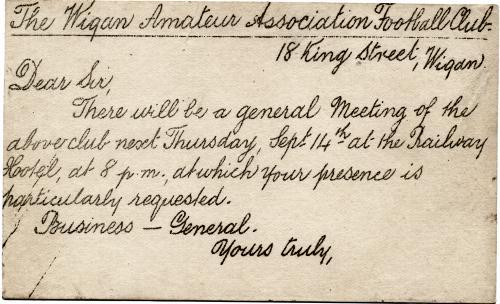 The Wigan Amateur Association Football Club.
18 King Street, Wigan.
Dear Sir,
There will be a general Meeting of the
above club next Thursday, Sept. 14th at the Railway
Hotel, at 8 p.m., at which your presence is
particularly requested.
Business — General.
Yours truly,